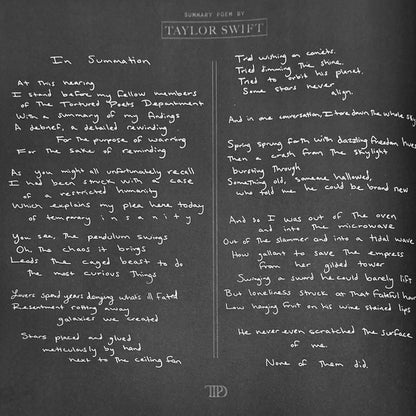 SUMMARY POEM BY
TAYLOR SWIFT
In Summation
At this hearing
I stand before my fellow members
of the Tortured Poets Department
With a summary of my findings
A debrief, a detailed rewinding
For the purpose of warning
For the sake of reminding
As you might all unfortunately recall
I had been struck with a case
of a restricted humanity
Which explains my plea here today
of temporary insanity
You see, the pendulum swings
Oh the chaos it brings
Leads the caged beast to do
the most curious things
Lovers spend years denying what's ill fated
Resentment rotting away
galaxies we created
Stars placed and glued
meticulously by hand
next to the ceiling fan
Tried wishing on comets.
Tried dimming the shine.
Tried to orbit his planet.
Some stars never
align.
And in one conversation, I tore down the whole sky
Spring sprung forth with dazzling freedom hues
Then a crash from the skylight
bursting through
Something old, someone hallowed,
who told me he could be brand new
And so I was out of the oven
and into the microwave
Out of the slammer and into a tidal wave
How gallant to save the empress
from her gilded tower
Swinging a sword he could barely lift
But loneliness struck at that fateful hour
Low hanging fruit on his wine stained lips
He never even scratched the surface
of me.
None of them did.
TTPD